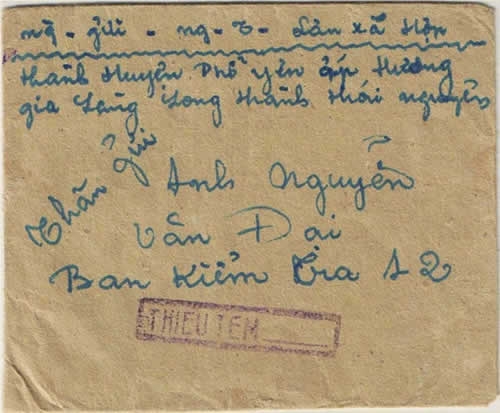 ng - gửi - ng - T - Lân xã Hợp
thành Huyện Phổ yên ấp Hương
gia Làng Long thành thái nguyên
Thân gửi
Anh Nguyễn
Văn Đại
Ban Kiểm Tra L 2
THIEU TEM